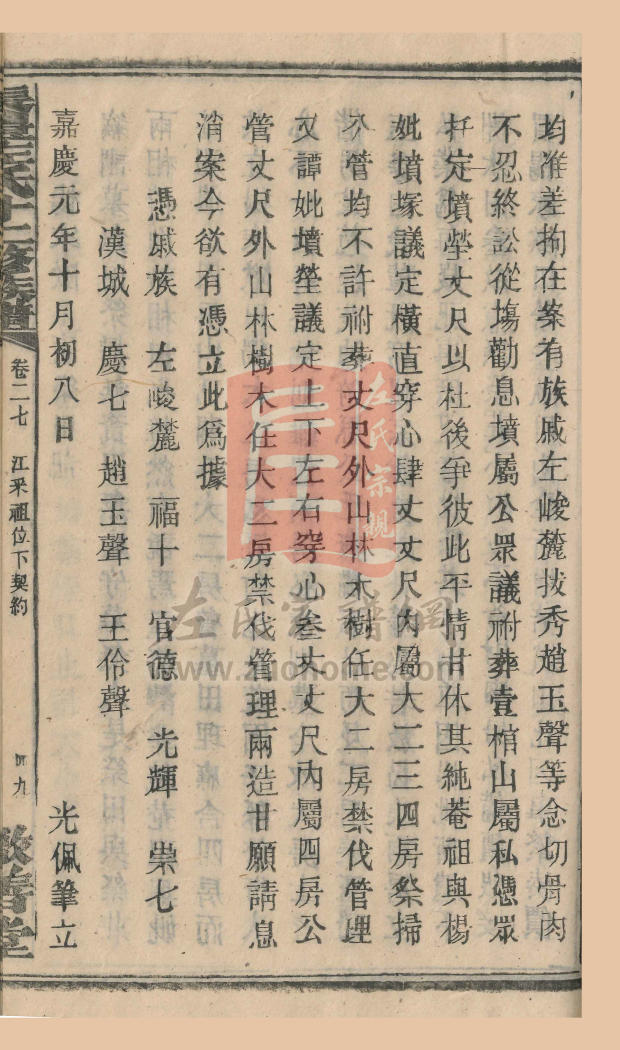 均准差拘在案有族戚左峻麓拔秀趙玉聲等念切骨肉
不忍終訟從塲勸息墳屬公眾議祔葬壹棺山屬私憑眾
扦定墳塋丈尺以杜後爭彼此平情甘休其純菴祖與楊
妣墳塚議定橫直穿心肆丈丈尺內屬大二三四房祭掃
公管均不許祔葬丈尺外山林木樹任大二房禁伐管理
又譚妣墳塋議定上下左右穿心叁丈丈尺內屬四房公
管丈尺外山林樹木任大二房禁伐管理兩造甘願請息
消案今欲有憑立此爲據
憑戚族 左峻麓 福十 官德 光輝 崇七
漢城 慶七 趙玉聲 王伶聲
嘉慶元年十月初八日 光佩筆立
氏十二修族譜
卷二七 江釆祖位下契約
四九
敬善堂
左氏宗親
左氏宗譜網
www.zuohome.com